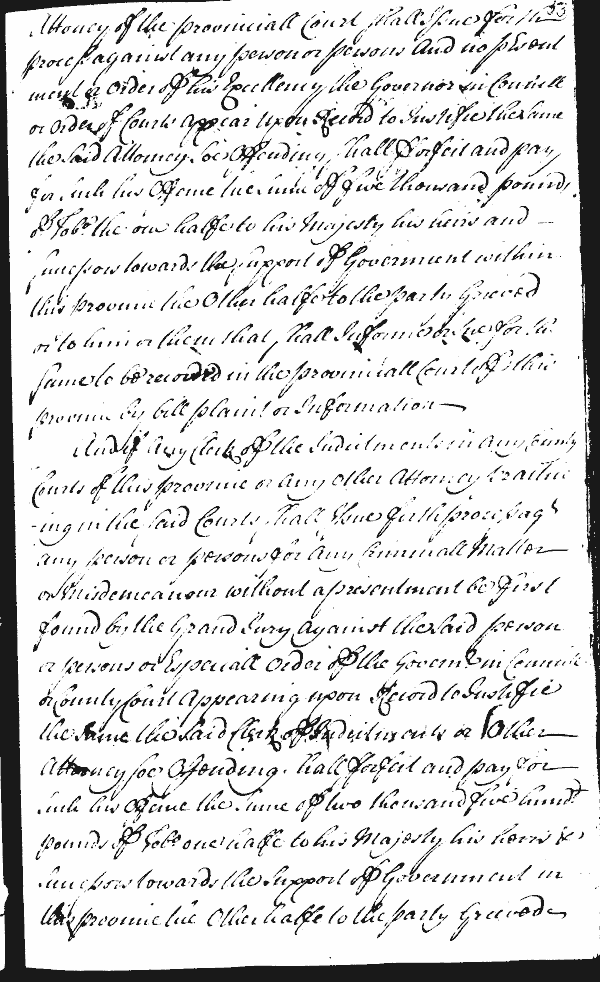 53
Attorney of the provinciall Court shall Issue forth
process against any person or persons And no psent
ment or Order of his Excellency the Governor in Councill
or Order of Courts appear upon Record to Justifie the same
the said Attorney soe Offending, shall forfeit and pay
for such his Offence the sume off five thousand pounds
off Tobo the one halfe to his Majesty his heirs and
successors towards the support off Government within
this province the Other halfe to the party Grieved
or to him or them that shall Informe or sue for the
same to be recorded in the provinciall Court off this
province by bill plaint or Information
And if any Clerk off the Indictments in any County
Courts of this province or any other Attorney practic
-ing in the said Courts shall Issue forth process agt
any person or persons for any Criminall Matter
or Misdemeanour without a presentment be first
found by the Grand Jury against the said person
or persons or Especiall Order off the Governr in Councill
or County Court Appearing upon Record to Justifie
the same the said Clerk off Indictments or Other
Attorney soe Offending shall forfeit and pay for
such his Offence the sume off two thousand five hundd
pounds off Tobo one halfe to his Majesty his heirs &
successors towards the support off Government in
this province the Other halfe to the party Grieved